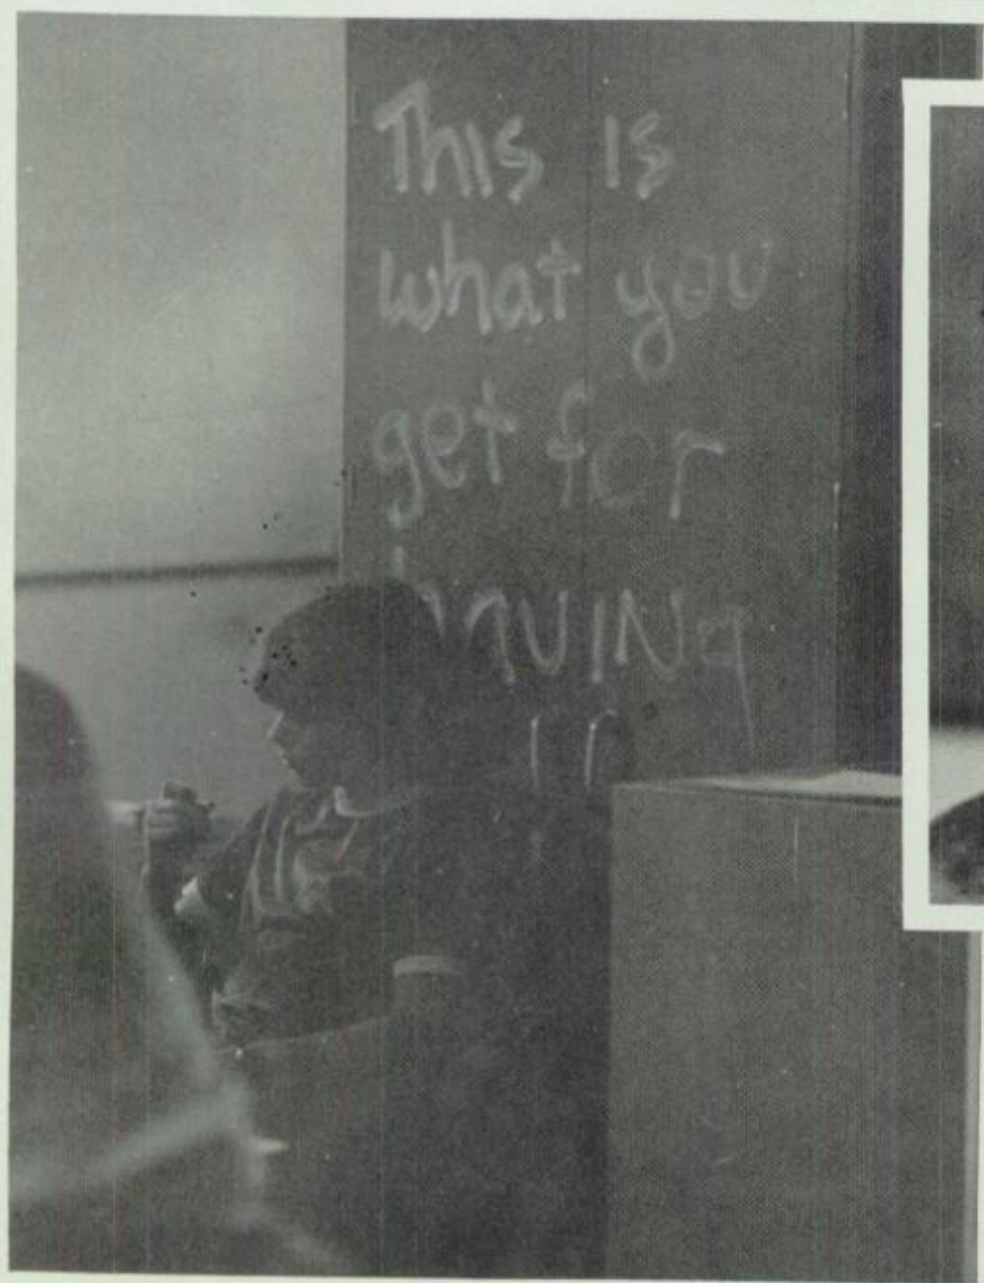 This is
what you
get for